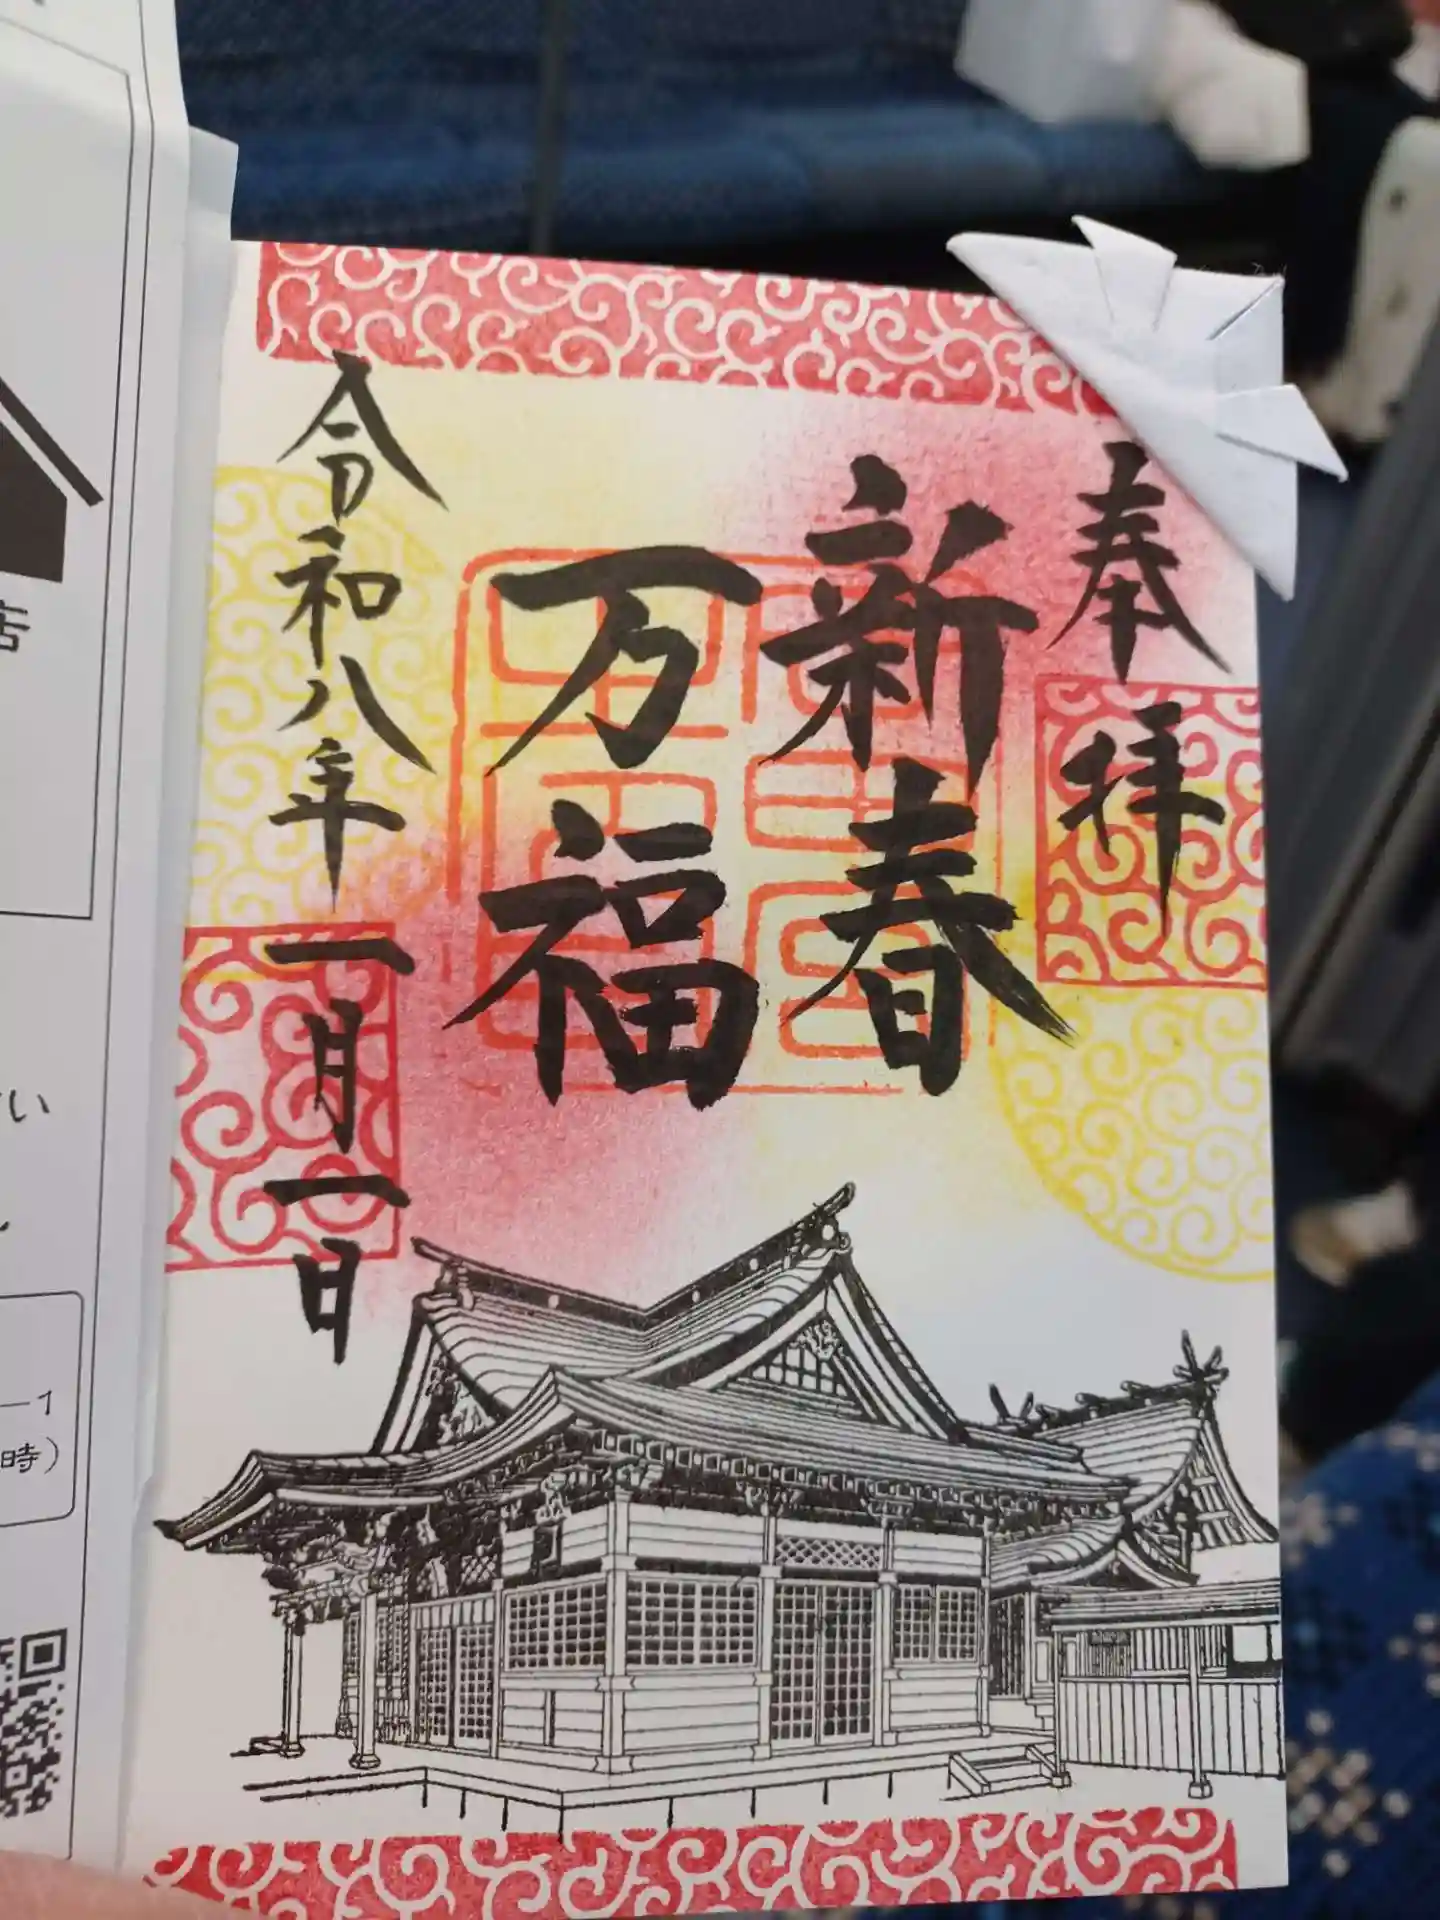 奉拝
新春
万福
令和八年一月一日
店
い
ー1
時)